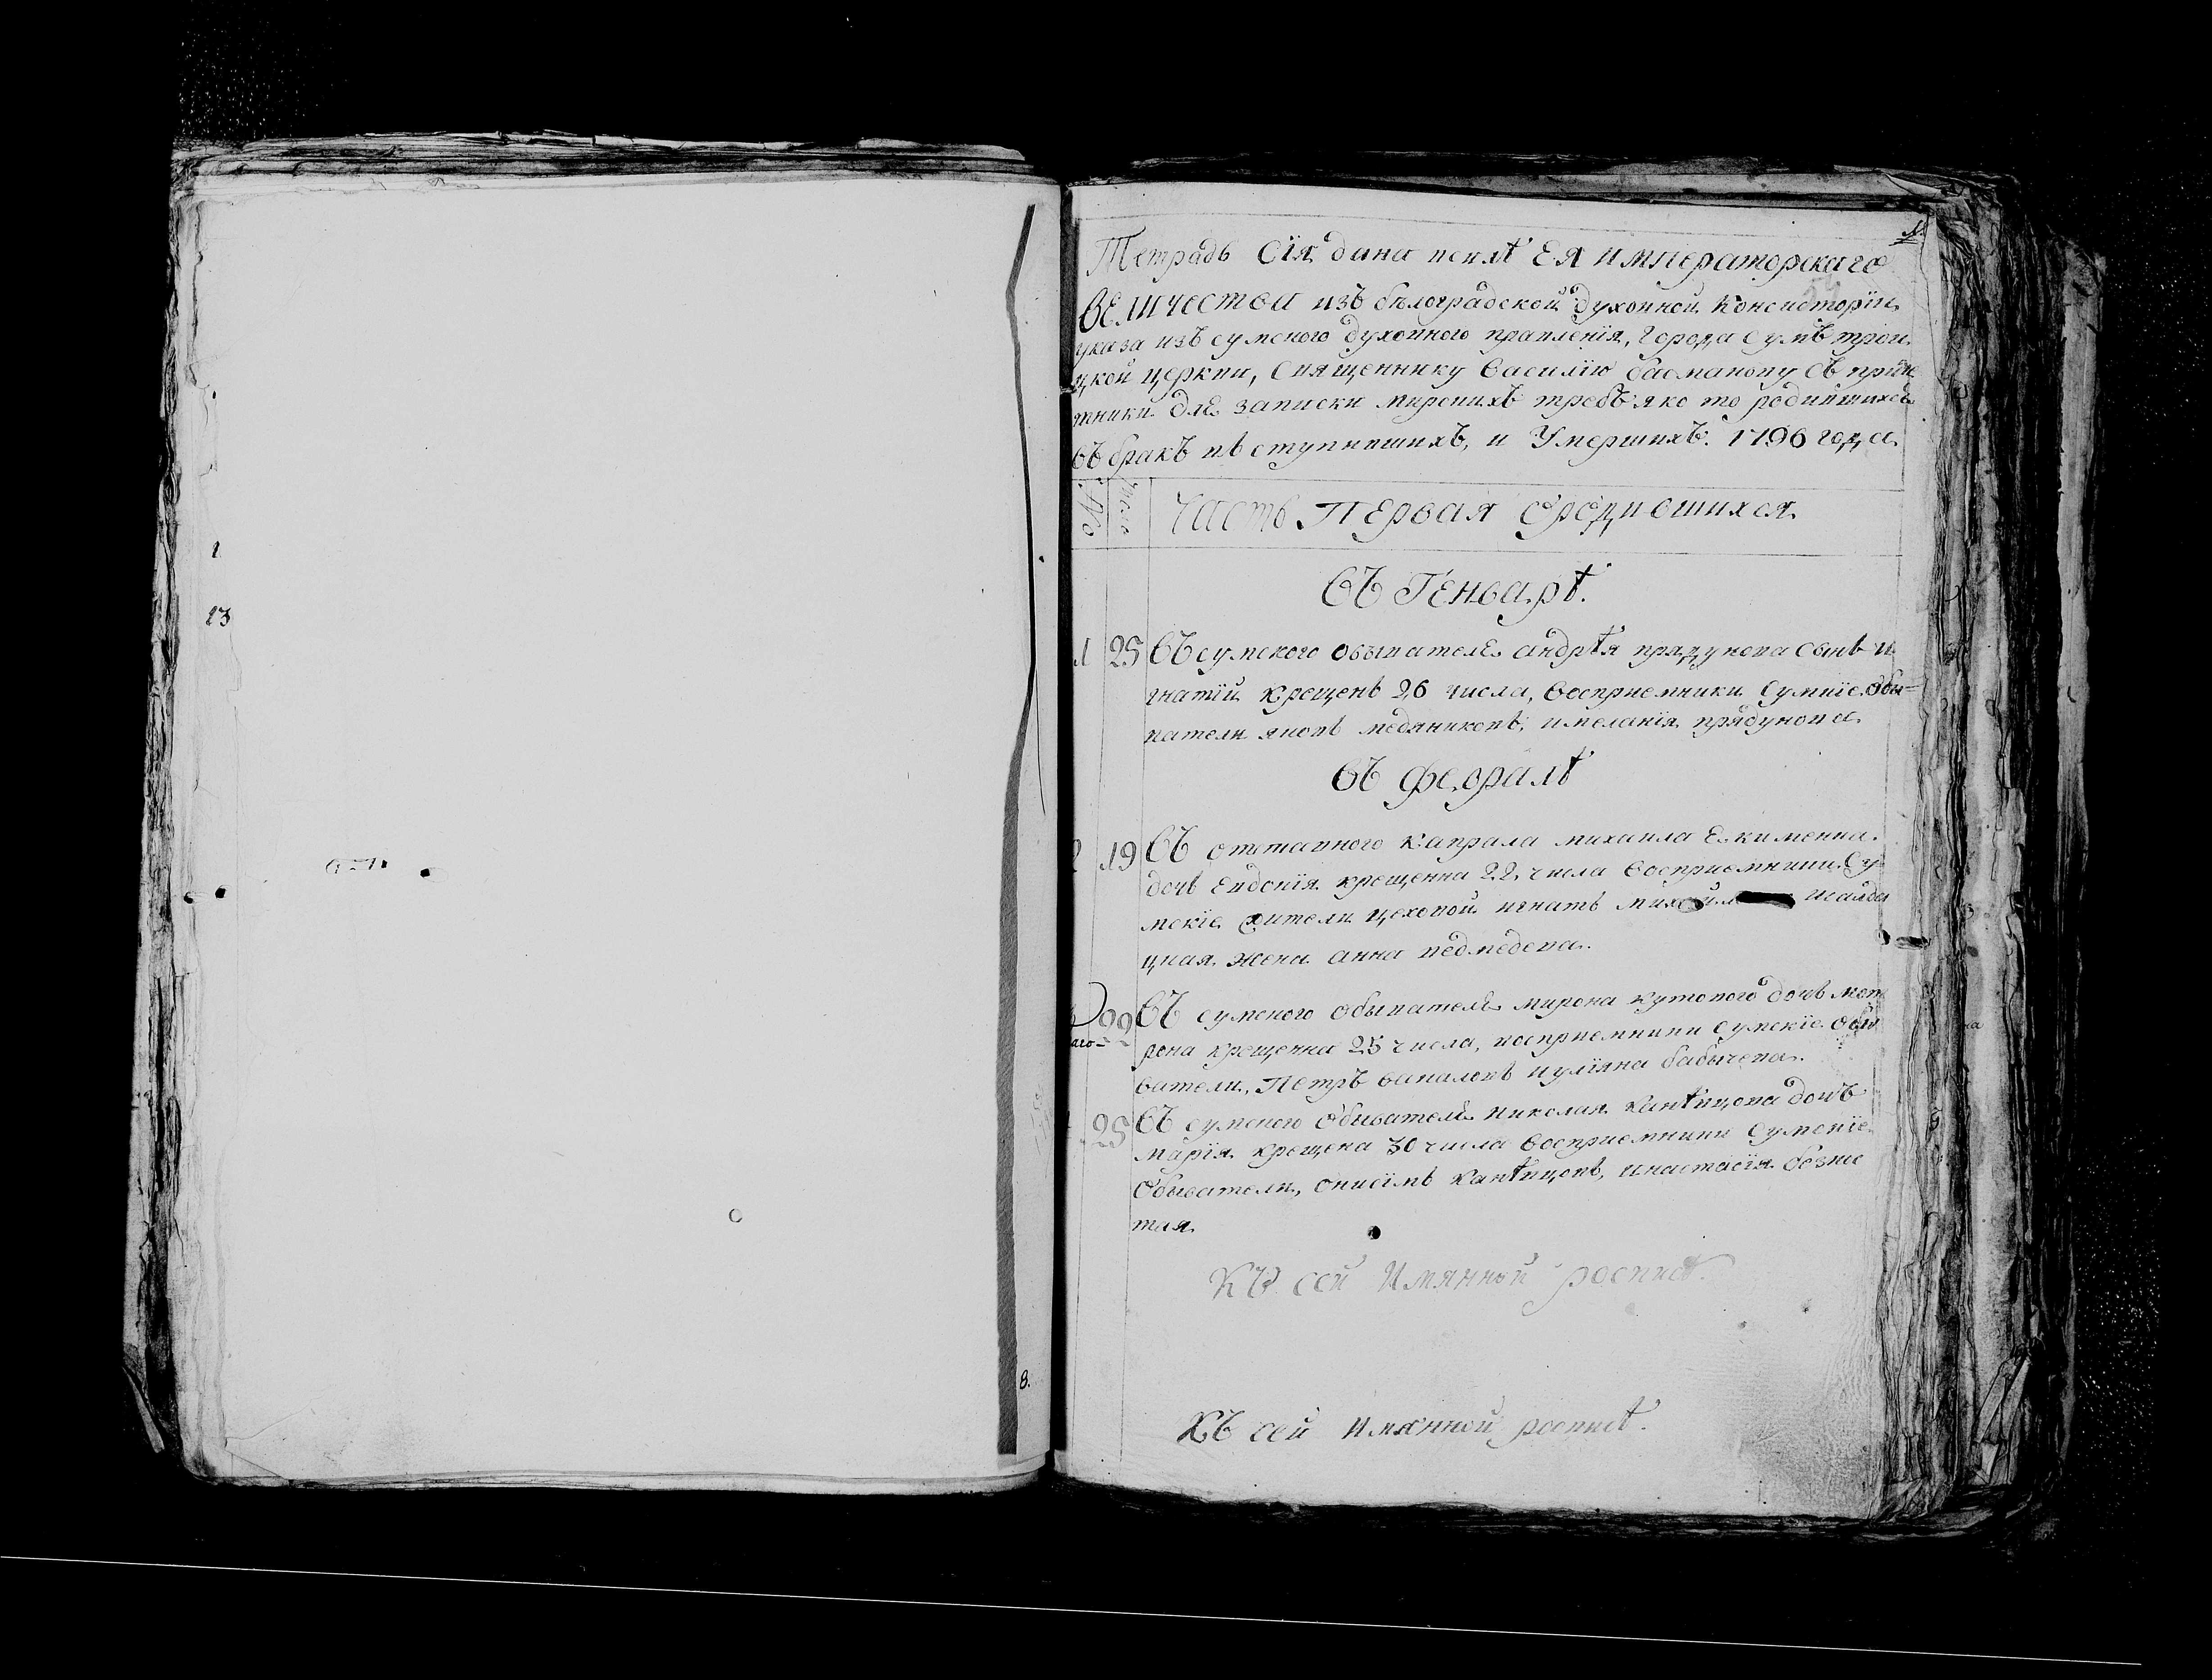 1
13
8.
Тетрадь Сїя дана повелѣ ЕЯ императорскаго
ВЕЛИЧЕСТВА изъ бѣлоградской духовной Консисторїи
указа изъ сумского духовного правленїя, города Сумъ трои
цкой церкви, Священнику Василїю басманову съ прич
тники для записки мирскихъ требъ яко то родившихся
въ бракъ въступившихъ, и Умершихъ. 1796 года
№ число Часть ПЕрвая о родившихся
Въ ГЕнварѣ.
1 25 Въ сумского обывателя андрѣя прядунова Сынъ и
гнатїй крещенъ 26 числа, восприемники Сумскїе обы=
ватели яковъ медяниковъ, имеланїя прядунова
Въ февралѣ
2 19 Въ отставного капрала михаила Екименка
дочь Евдокїя крещенна 22 числа восприемники Су
мскїе жители цеховой игнатъ исалда
цкая жена анна ведмедева.
22 Въ сумского обывателя мирона кутового дочь мот
рона крещенна 25 числа, восприемники сумскїе обы
ватели, Петръ и улїяна бабычева.
25 Въ сумского обывателя николая канѣвцова дочь
марїя крещена 30 числа восприемники Сумскїе
обыватели, онисїмъ канѣвцовъ, инастасїя безпе
тая.
Къ сей Имянной росписѣ.
Къ сей имянной росписѣ.